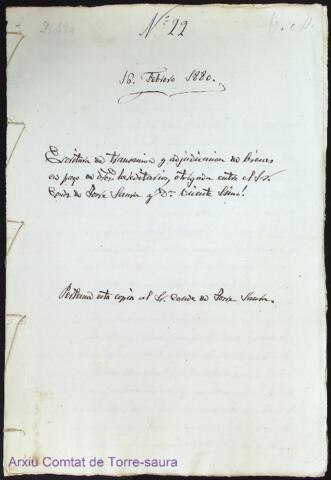 Nº 22
16. Febrero 1880.
Escritura de transaccion y adjudicacion de bienes
en pago de hereditarios, otorgada entre el Sr.
Conde de Torre Saura y Dn. Vicente
Pertenece esta copia al Sr. Conde de Torre Saura.
Arxiu Comtat de Torre-saura